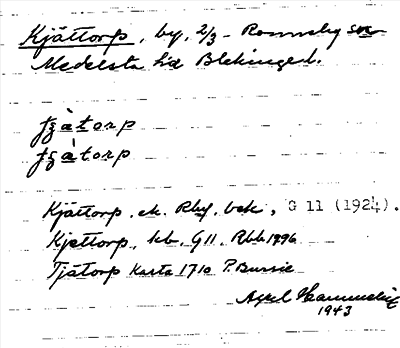 Kjättorp, by, 2/3 - Ronneby sn
Medelsta hd Blekinge l.
tjàtorp
tjàtorp
Kjättorp, ek. Rby, bek, G 11 (1924).
Kjettorp, kb. G 11. Rbb 1996
Tjätorp Karta 1710 P. Bussie
Axel
1943